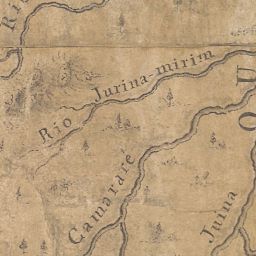 Ri
Rio Jurina-mirim
O
Camararé
Juina